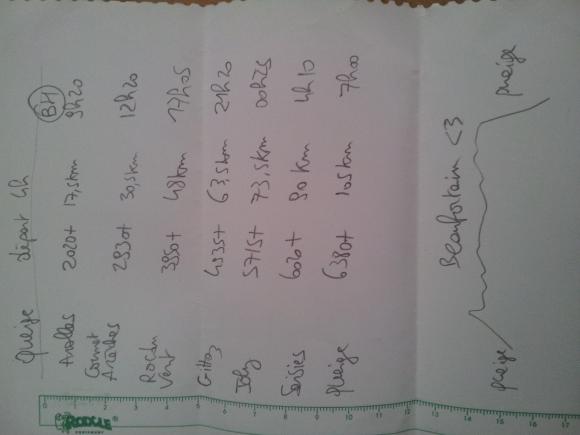 Queige départ 4h BH
Arolles 2020+ 17,5km 9h20
Cormet
Arêches 2930+ 30,5km 12h20
Roc du
Vent 3950+ 48km 17h05
Gittaz 4935+ 63,5km 21h20
Joly 5715+ 73,5km 00h25
Saisies 6020+ 90km 4h10
Queige 6380+ 105km 7h00
Beaufortain <3
queige queige
3 4 5 6 7 8 9 10 11 12 13 14 15 16 17